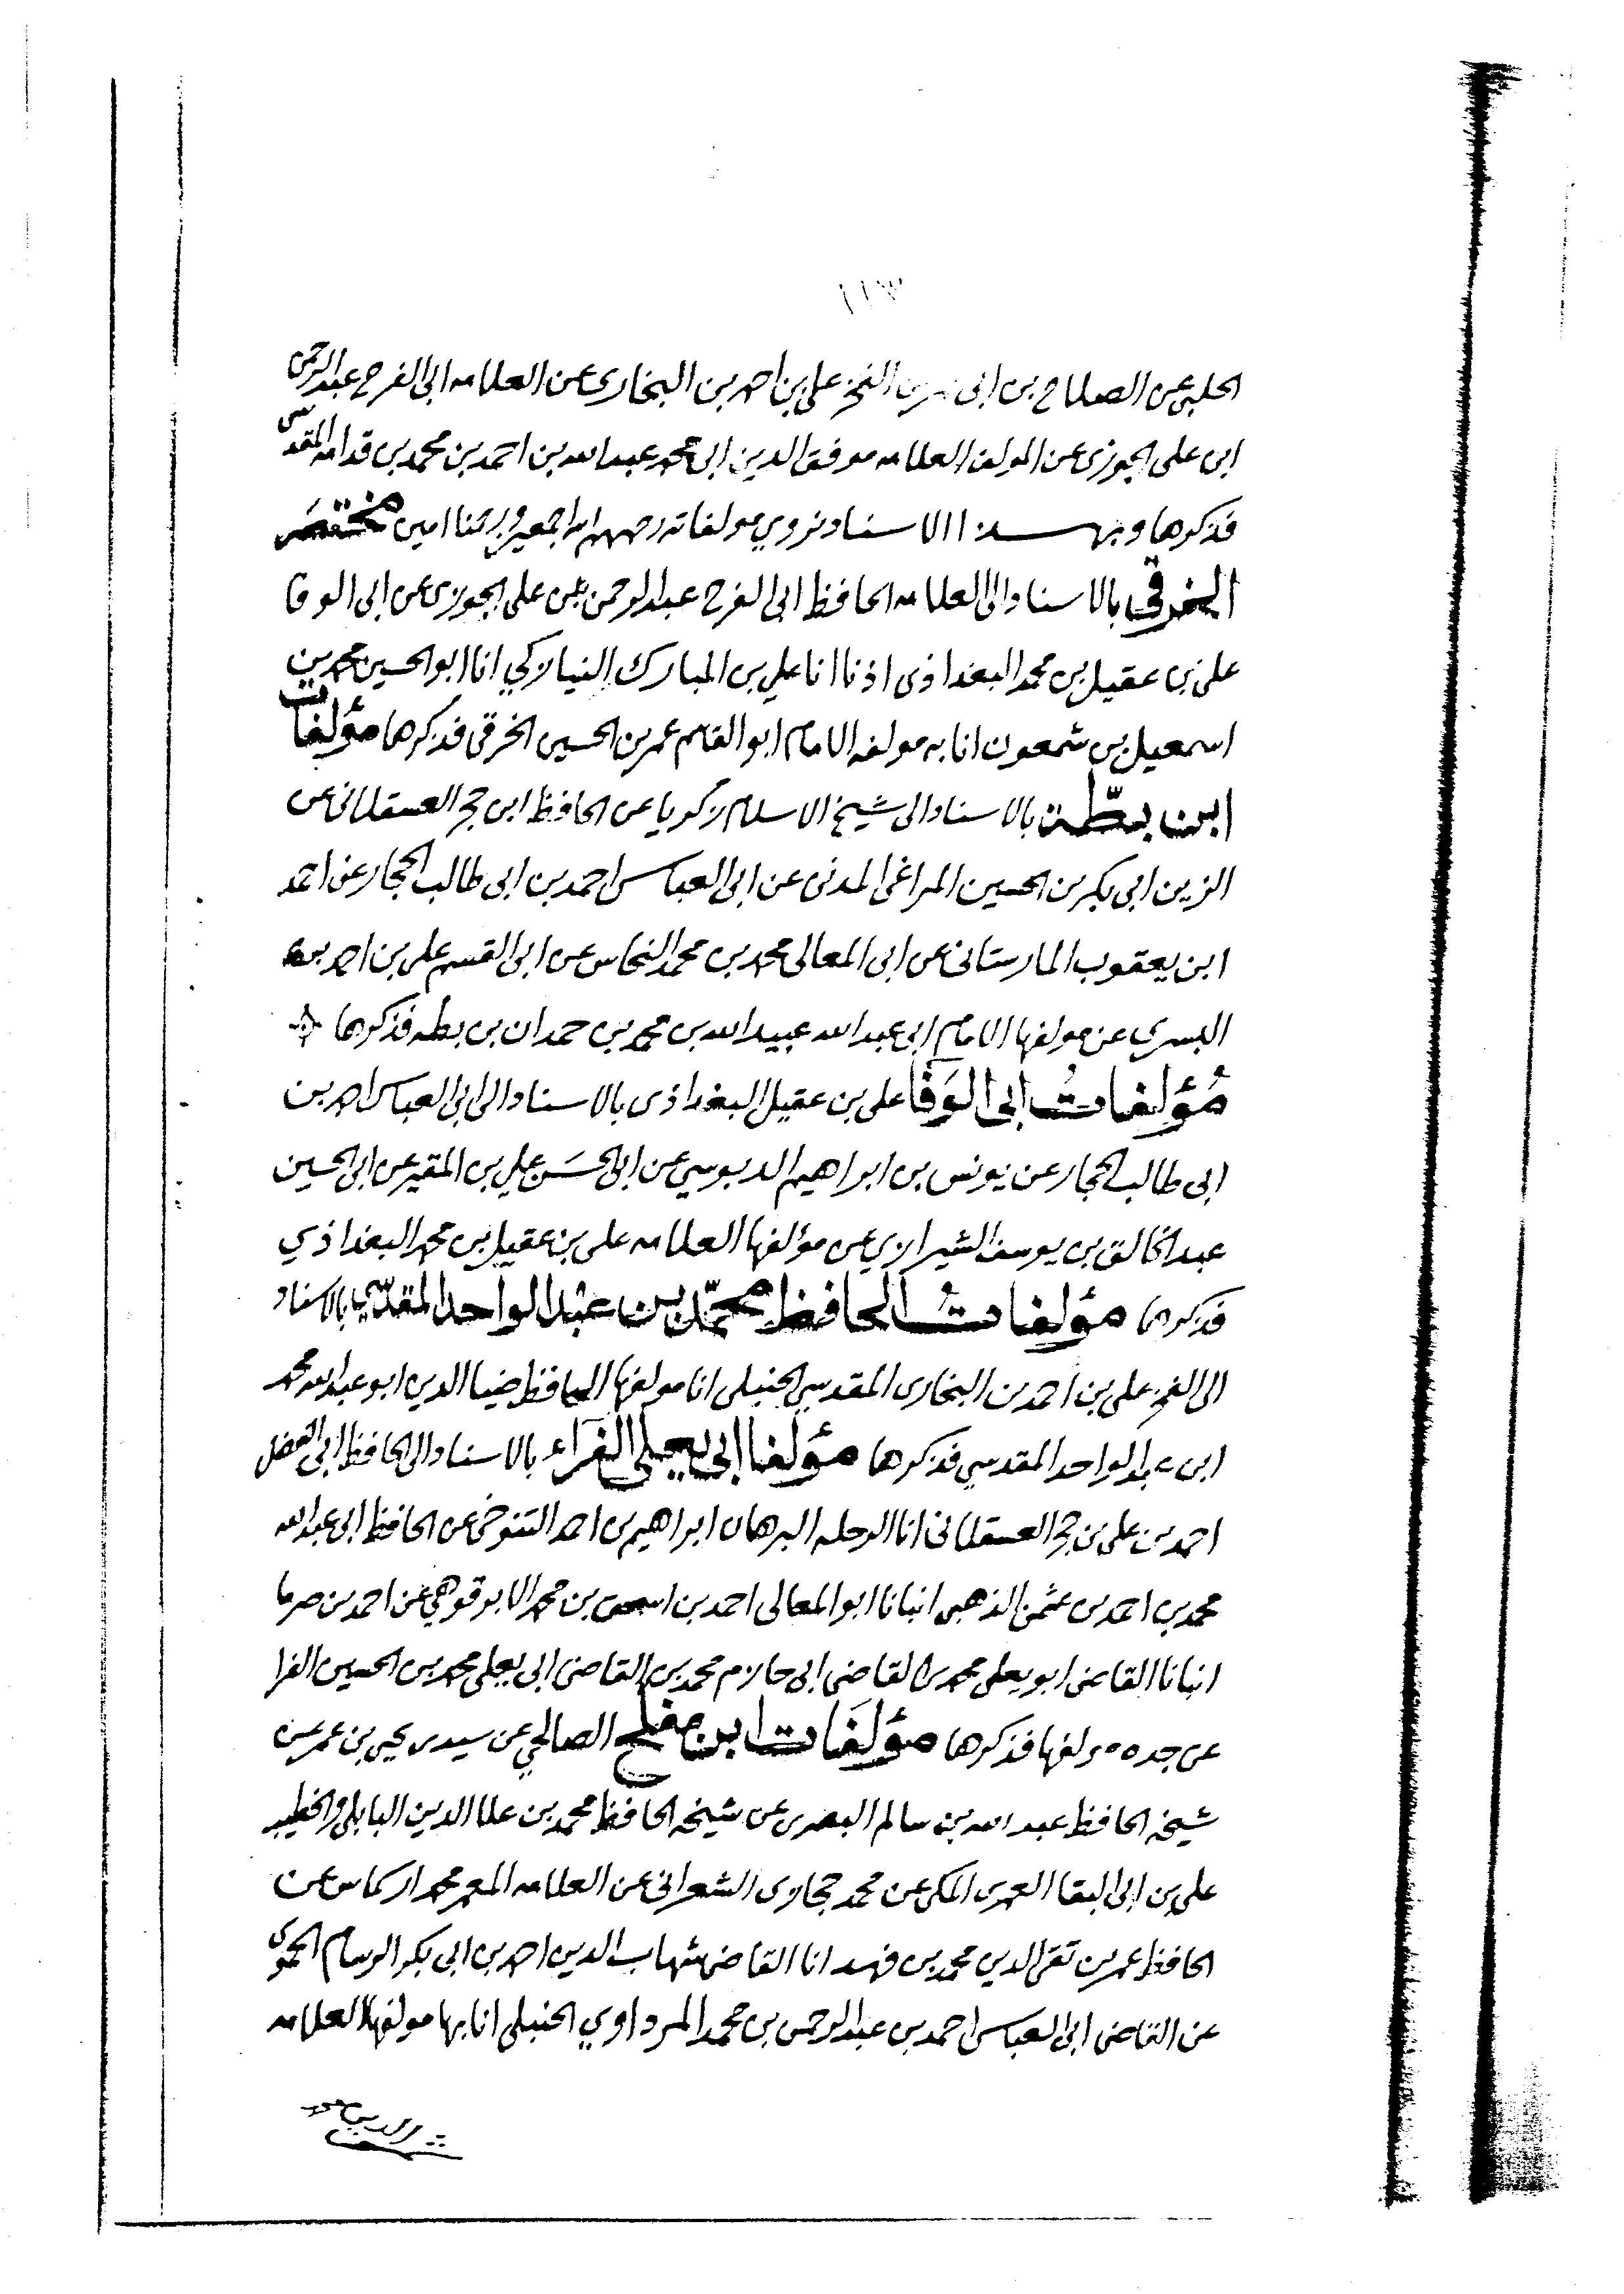 ١١٣
الحلبي عن الصلاح بن ابى عمر عن الفخر على بن احمد بن البخارى عن العلامه ابى الفرج عبد الرحمن
ابن على الجوزى عن المولف العلامه موفق الدين ابى محمد عبد الله بن احمد بن محمد بن قدامه المقدسى
فذكرها وبهــذا الاسناد نروي مولفاته رحمهم الله اجمعين امين مختصر
الخرقي بالاسناد الى العلامه الحافظ ابى الفرج عبد الرحمن بن على الجوزى عن ابى الوفا
على بن عقيل بن محمد البغداذى اذنا انا علي بن المبارك انا ابو الحسين محمد بن
اسمعيل بن شمعون انا به مولفه الامام ابو القاسم عمر بن الحسين الخرقى فذكرها مؤلفات
ابن بطّة بالاسناد الى شيخ الاسلام زكريا عن الحافظ ابن حجر العسقلانى عن
الزين ابى بكر بن الحسين المراغى المدنى عن ابى العباس احمد بن ابى طالب الحجار عن احمد
ابن يعقوب المارستانى عن ابى المعالى محمد بن محمد النحاس عن ابى القسم على بن احمد بن
البسري عن مولفها الامام ابى عبد الله عبيد الله بن محمد بن حمدان بن بطه فذكرها
مُؤلفاتُ ابى الوَفَا على بن عقيل البغداذى بالاسناد الى ابى العباس احمد بن
ابى طالب الحجار عن يونس بن ابراهيم الدبوسي عن ابى الحسَن علي بن المقير عن ابى الحسين
عبد الخالق بن يوسف الشيرازي عن مؤلفها العلامه على بن عقيل بن محمد البغداذي
فذكرها مؤلفاتُ الحافظ محمّد بن عبْد الواحد المقدّسي بالاسناد
الى الفخر على بن احمد بن البخارى المقدسي الحنبلى انا مولفها الحافظ ضيا الدين ابو عبد الله محمد
ابن عبد الواحد المقدسي فذكرها مؤلفات ابى يعلى الفَرَّاء بالاسناد الى الحافظ ابى الفضل
احمد بن على بن حجر العسقلانى انا الرحله البرهان ابراهيم بن احمد التنوخى عن الحافظ ابى عبد الله
محمد بن احمد بن عثمن الذهبى انبانا ابو المعالى احمد بن اسحق بن محمد الابرقوهي عن احمد بن صرما
انبانا القاضى ابو يعلى محمد بن القاضى ابى حازم محمد بن القاضى ابى يعلى محمد بن الحسين الفرا
عن جده مولفها فذكرها مؤلفَات ابن مفلح الصالحي عن سيدى يحيى بن عمر عن
شيخه الحافظ عبد الله بن سالم البصرى عن شيخه الحافظ محمد بن علا الدين البابلى والخطيب
على بن ابى البقا العمرى المكى عن محمد حجازى الشعرانى عن العلامه المعمر محمد اركماس عن
الحافظ عمر بن تقى الدين محمد بن فهد انا القاضى شهاب الدين احمد بن ابى بكر الرسام الحموى
عن القاضى ابى العباس احمد بن عبد الرحمن بن محمد المرداوي الحنبلى انا بها مولفها العلامه
شمس الدين محمد